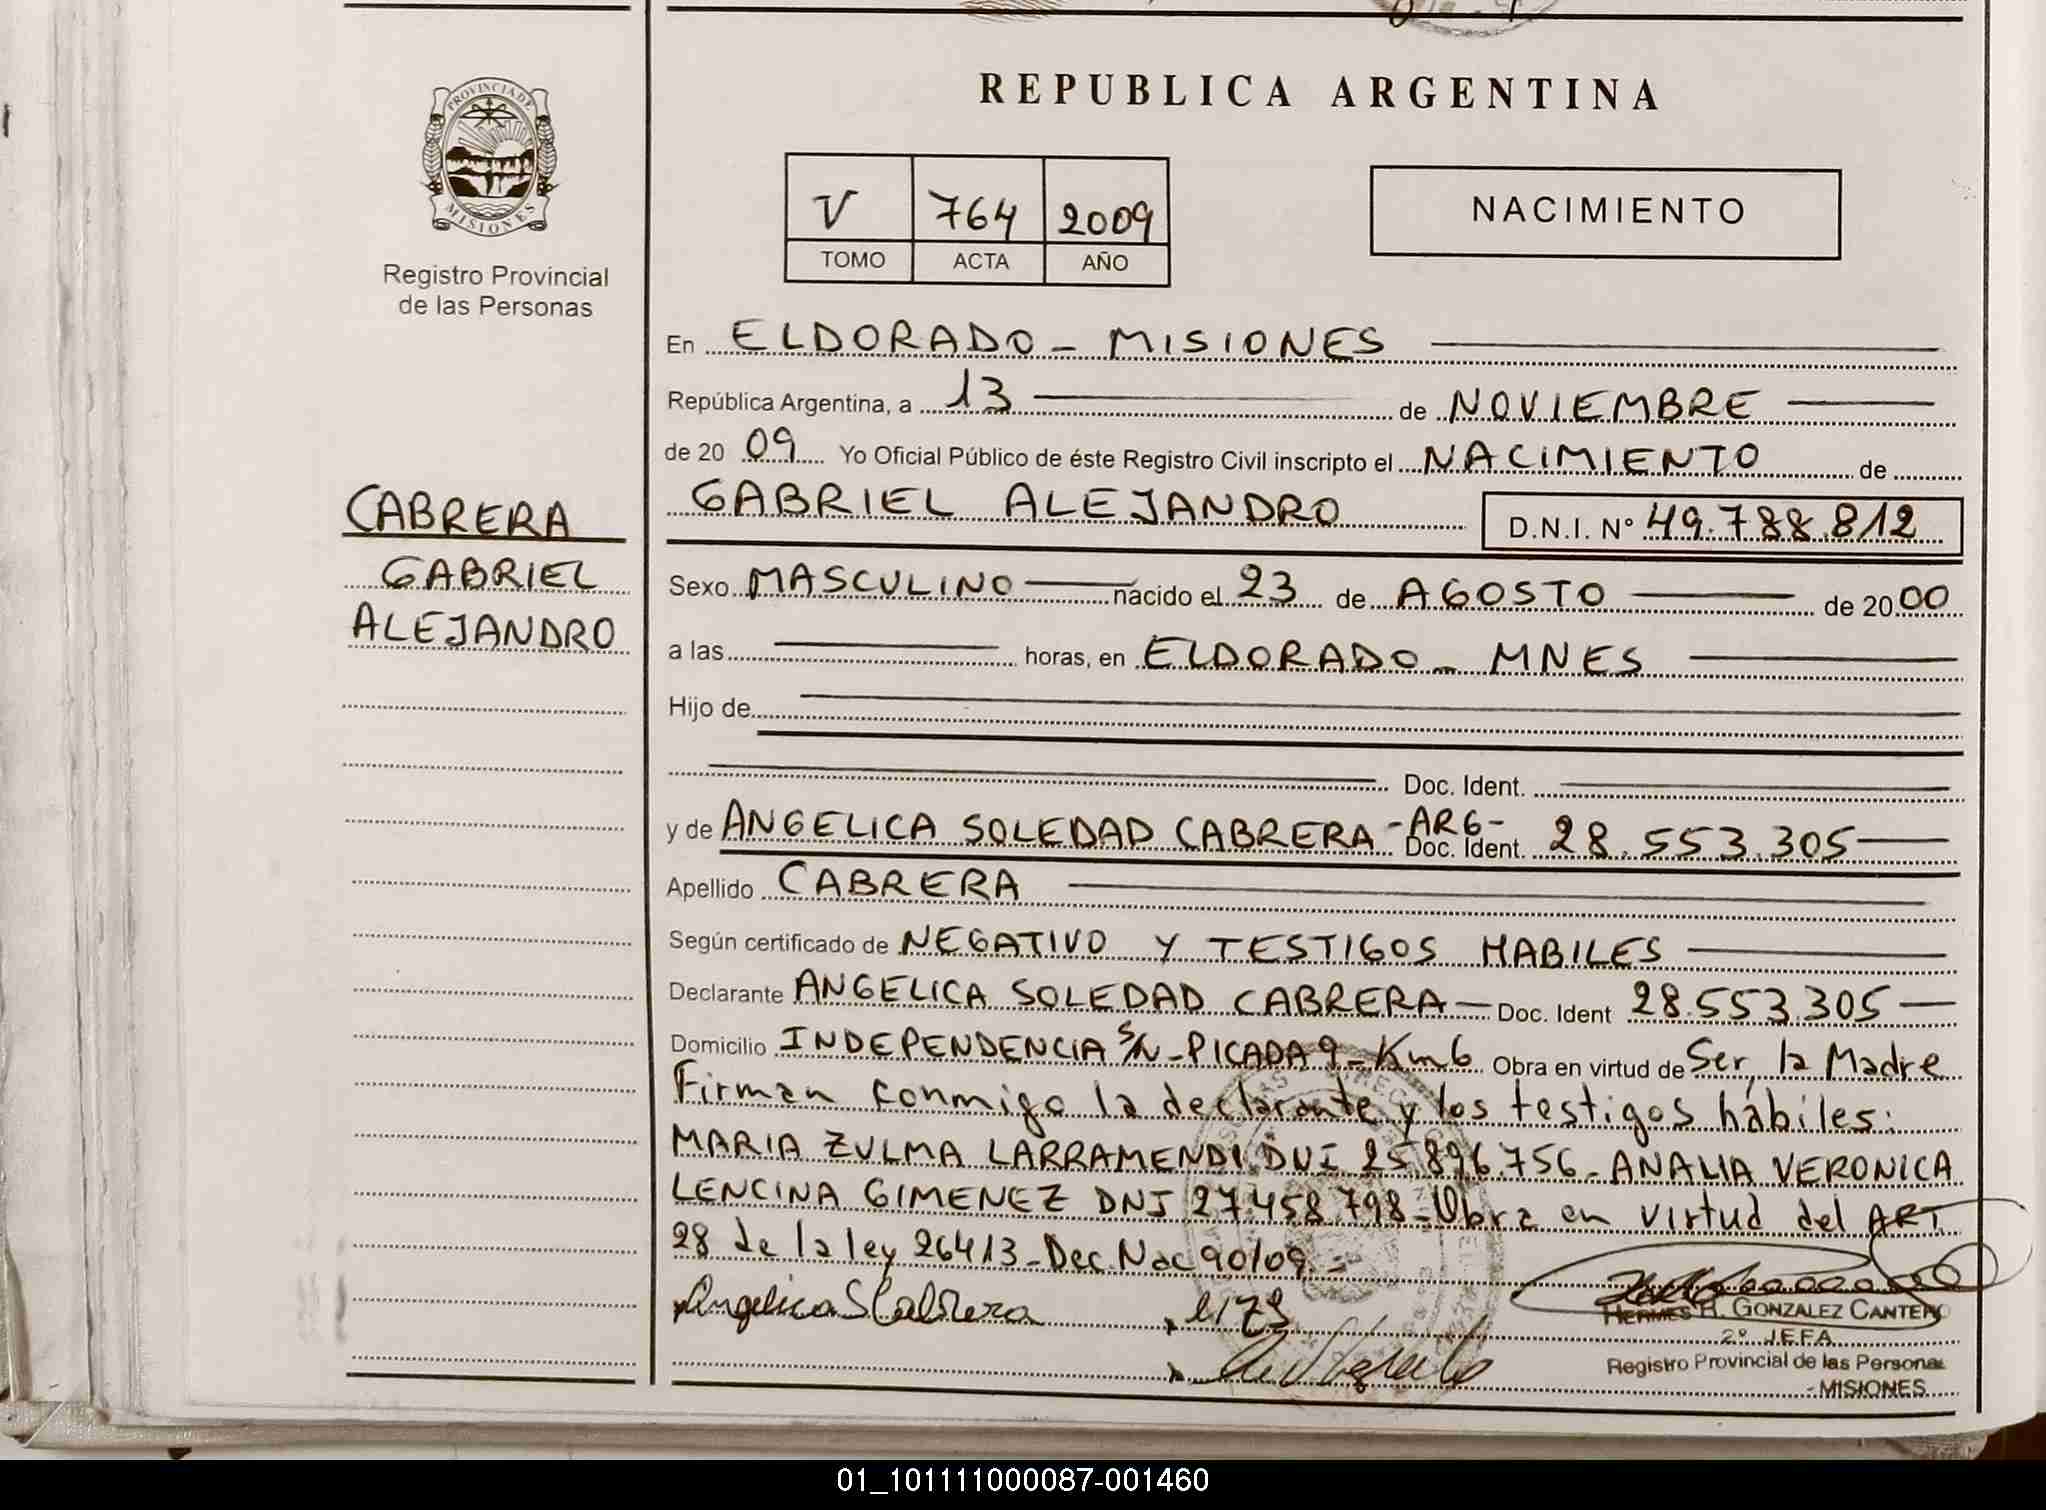 PROVINCIA DE
MISIONES
Registro Provincial
de las Personas
CABRERA
GABRIEL
ALEJANDRO
REPUBLICA ARGENTINA
V 764 2009
TOMO ACTA AÑO
NACIMIENTO
En ELDORADO - MISIONES
República Argentina, a 13 de NOVIEMBRE
de 20 09 Yo Oficial Público de éste Registro Civil inscripto el NACIMIENTO de
GABRIEL ALEJANDRO D.N.I. Nº 49.788.812
Sexo MASCULINO nacido el 23 de AGOSTO de 20 00
a las horas, en ELDORADO - MNES
Hijo de
Doc. Ident.
y de ANGELICA SOLEDAD CABRERA -ARG- Doc. Ident. 28.553.305
Apellido CABRERA
Según certificado de NEGATIVO Y TESTIGOS HABILES
Declarante ANGELICA SOLEDAD CABRERA Doc. Ident 28.553.305
Domicilio INDEPENDENCIA S/N - PICADA 9 - Km 6 Obra en virtud de Ser la Madre
Firman conmigo la declarante y los testigos hábiles:
MARIA ZULMA LARRAMENDI DNI 25.896.756 - ANALIA VERONICA
LENCINA GIMENEZ DNI 27.458.798 - Obra en virtud del ART
28 de la ley 26413 - Dec. Nac 90/09. =
Angelica S Cabrera
HERMES R. GONZALEZ CANTERO
2º JEFA
Registro Provincial de las Personas
- MISIONES
01_101111000087-001460